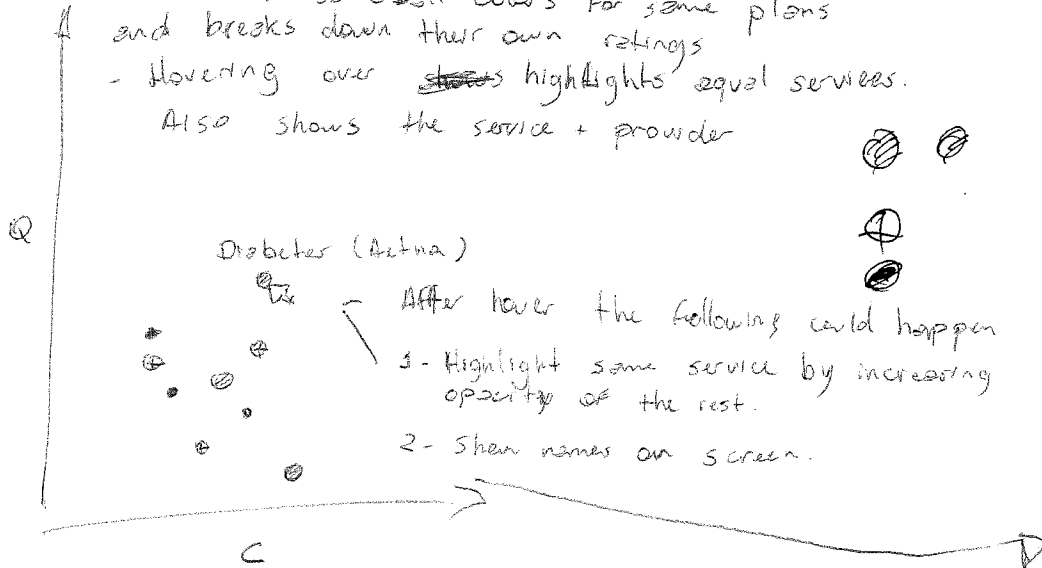 for same plans
and breaks down their own ratings
- Hovering over highlights equal services.
Also shows the service + provider
Q
Diabeter (Aetna)
After hover the following could happen
1- Highlight same service by increasing
opacity of the rest.
2- Show names on screen.
C